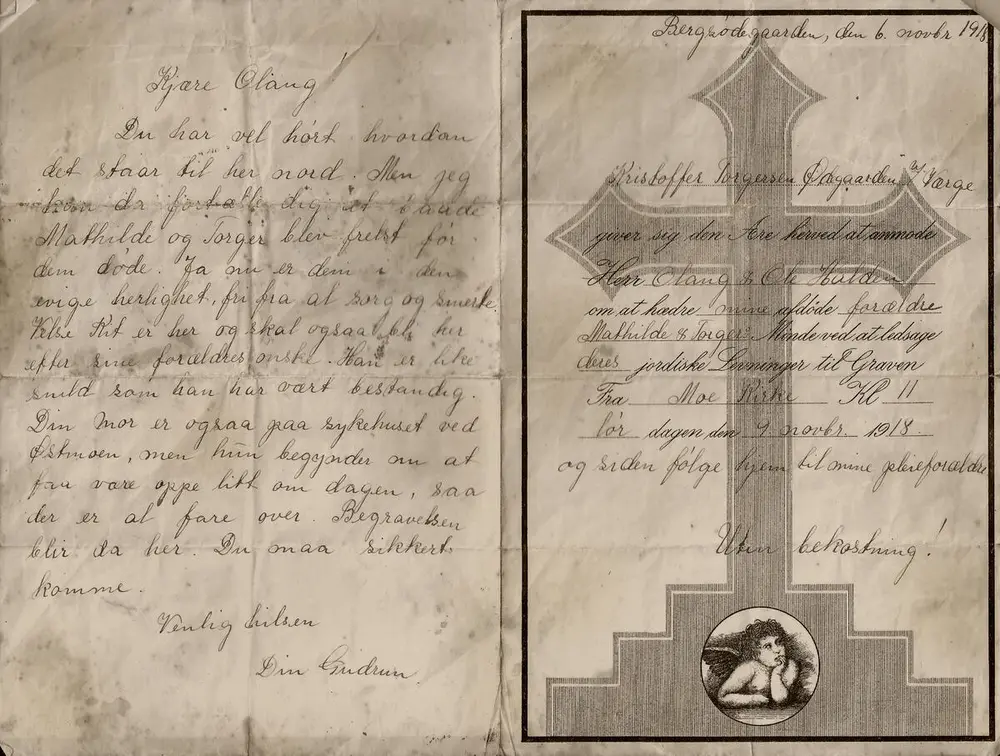 Kjære Olaug!
Du har vel hørt hvordan
det staar til her nord. Men jeg
kan da fortælle dig at baade
Mathilde og Torger blev frelst før
dem døde. Ja nu er dem i den
evige herlighet, fri fra al sorg og smerte.
Kit er her og skal ogsaa bli her
efter sine forældres ønske. Han er like
snild som han har vært bestandig.
Din Mor er ogsaa paa sykehuset ved
Østmoen, men hun begynder nu at
faa være oppe litt om dagen, saa
der er al fare over. Begravelsen
blir da her. Du maa sikkert
komme.
Venlig hilsen
Din Gudrun.
Bergsødegaarden, den 6. novbr 1918.
Kristoffer Torgersen Ødegaarden Værge
giver sig den Ære herved at anmode
Herr Olaug & Ole Halden
om at hædre mine afdöde forældre
Mathilde & Torgers Minde ved at ledsage
deres jordiske Levninger til Graven
Fra Moe Kirke Kl 11
lør dagen den 9 novbr. 1918.
og siden følge hjem til mine pleieforældre
Uten bekostning!